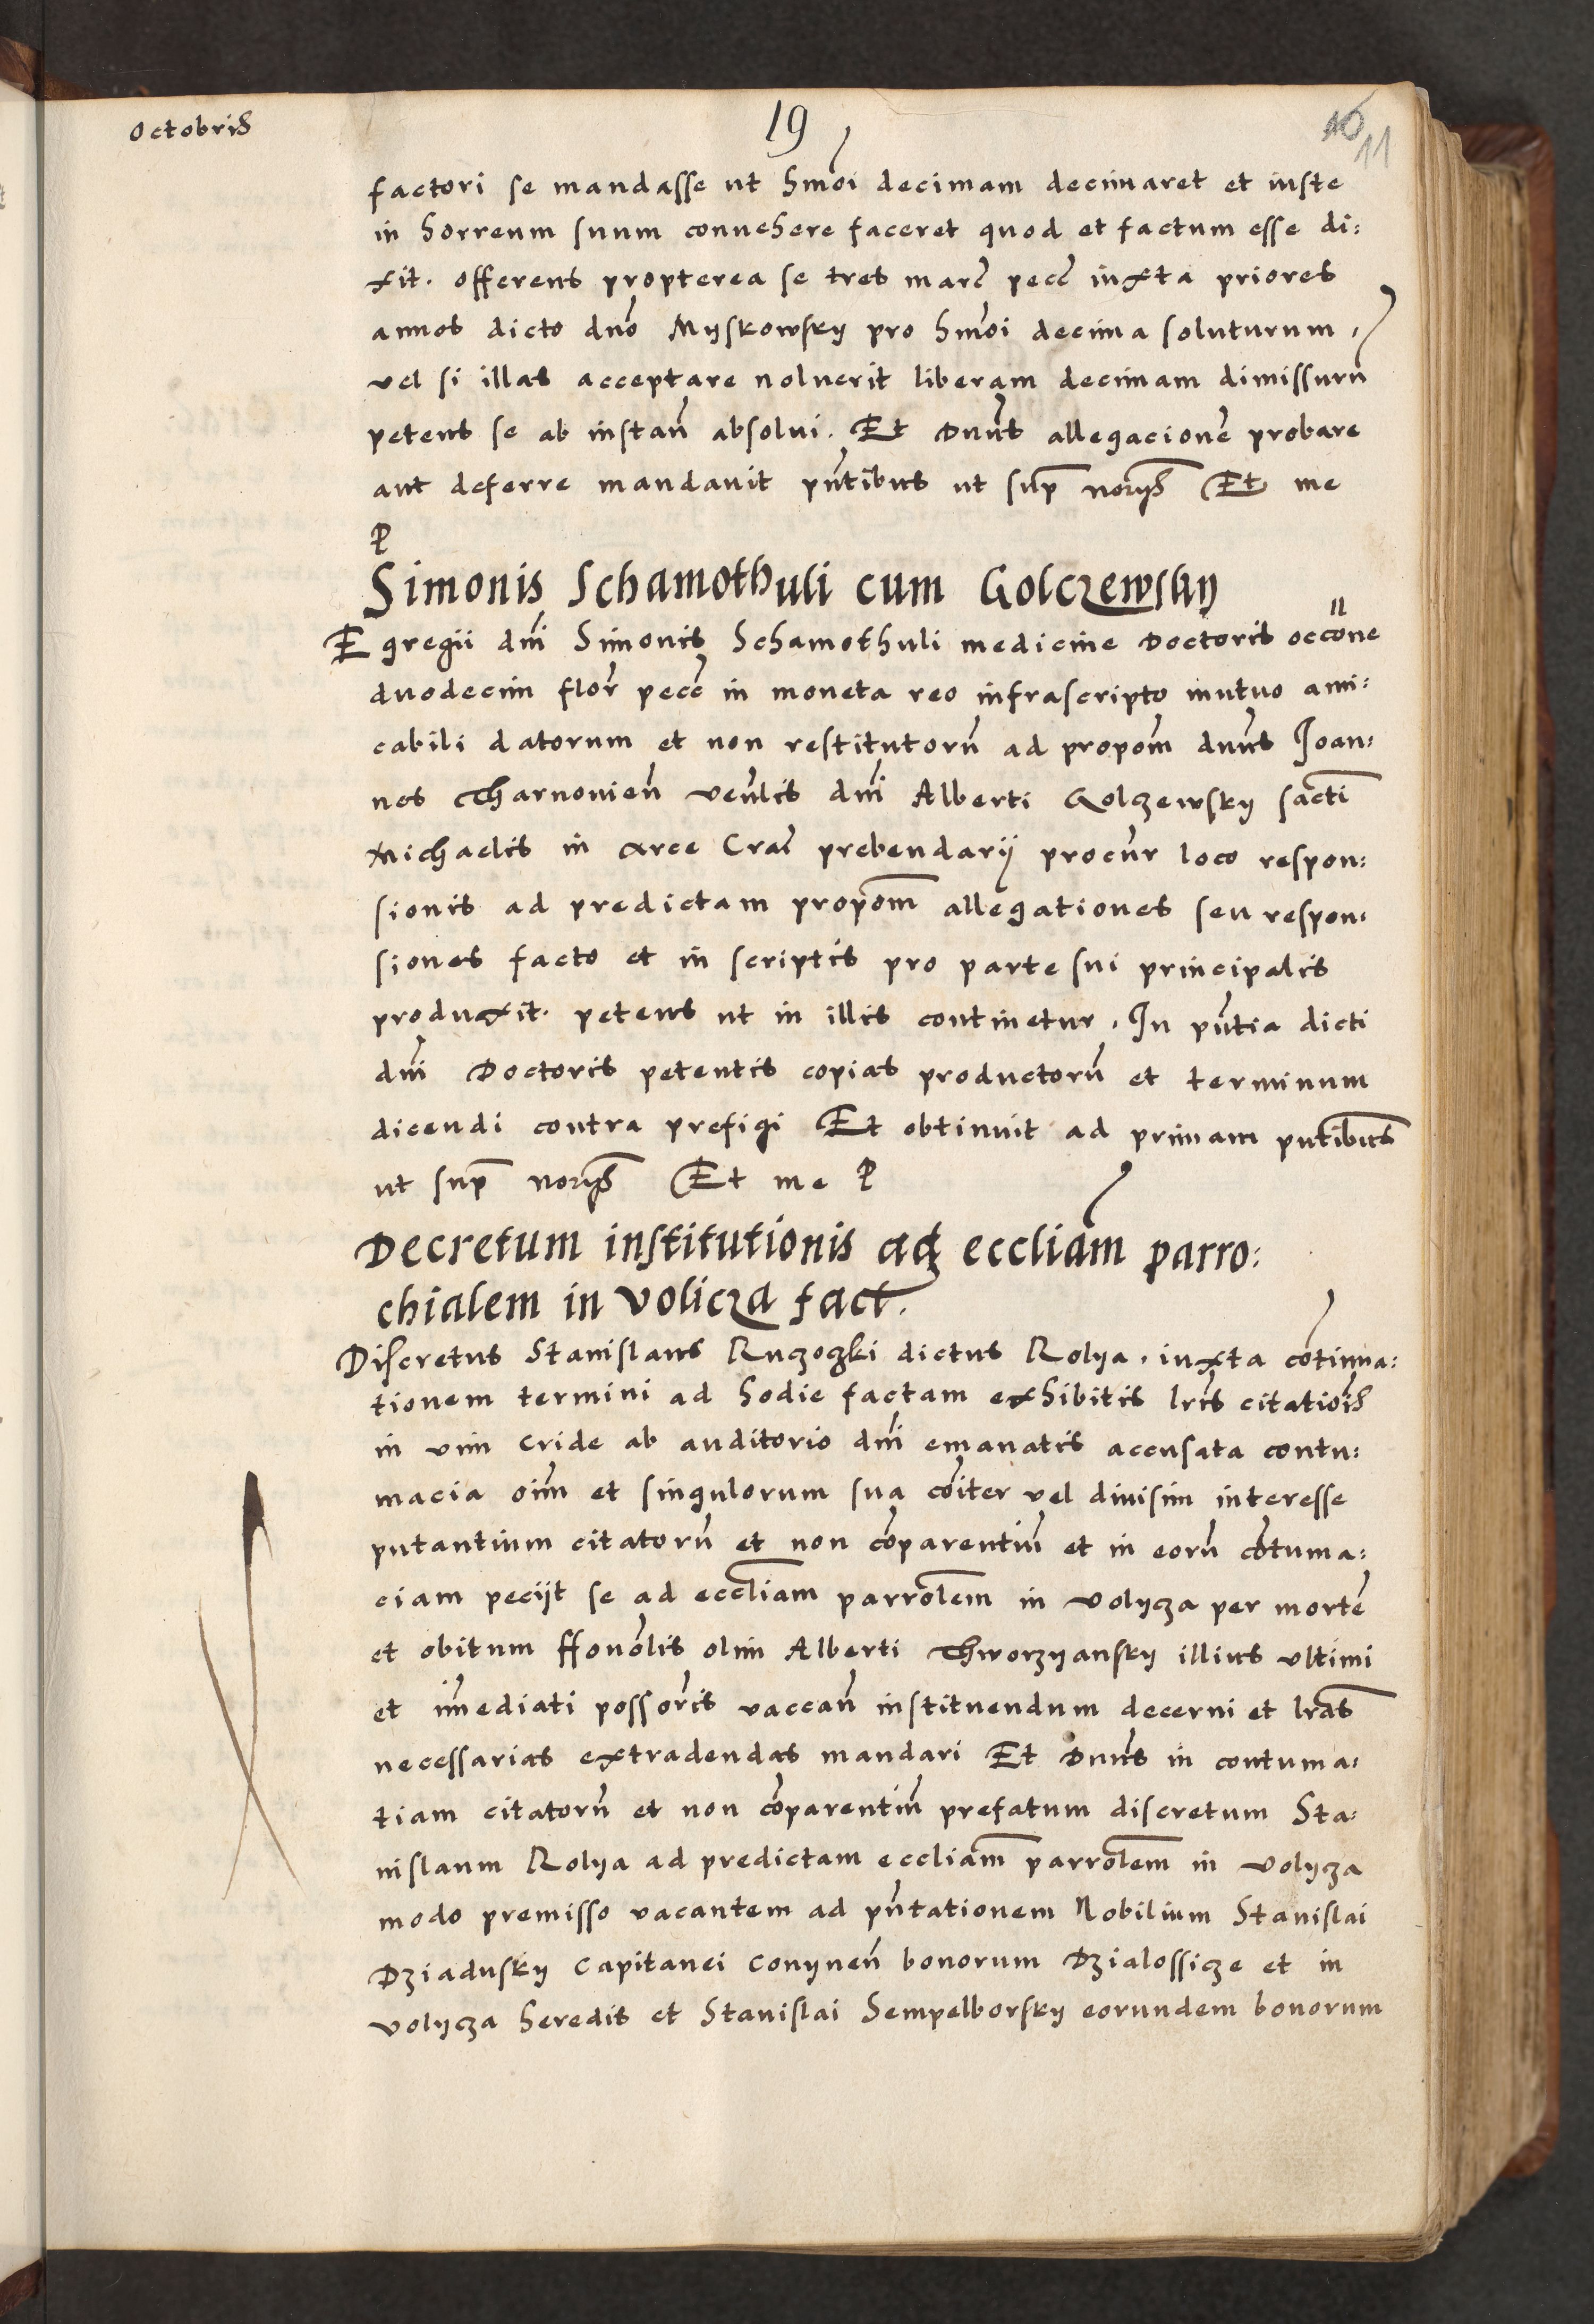 Octobris
19
10
11
factori se mandasse ut hmōi decimam decimaret et iuste
in horreum suum convehere faceret quod et factum esse di:
xit. offerens propterea se tres marc̄ pecc̄ iuxta priores
annos dicto dnō Myskowsky pro hmōi decima soluturum,
vel si illas acceptare noluerit liberam decimam dimissurū
petens se ab instan̄ absolui. Et Dnūs allegacionē probare
aut deferre mandauit pn̄tibus ut sup̄ nor̄ijs Et me
P
Simonis Schamothuli cum Golczewsky
Egregii dnī Simonis Schamothuli medicine Doctoris occōne
duodecim flor̄ pecc̄ in moneta reo infrascripto mutuo ami:
cabili datorum et non restitutorū ad propōm dnūs Joan:
nes Tharnovien̄ ven̄lis dnī Alberti Golczewsky sāncti
Michaelis in arce Crac̄ prebendarij procūr loco respon:
sionis ad predictam propōm allegationes seu respon:
siones facto et in scriptis pro parte sui principalis
produxit. petens ut in illis continetur. In pn̄tia dicti
dnī Doctoris petentis copias productorū et terminum
dicendi contra prefigi Et obtinuit ad primam pn̄tibus
ut sup̄ nor̄ijs Et me P
Decretum institutionis ad eccliām parro:
chialem in Volicza fact.
Discretus Stanislaus Ruczoczki dictus Rolya. iuxta cōtinua:
tionem termini ad hodie factam exhibitis lrīs citatiōis
in vim cride ab auditorio dnī emanatis accusata contu:
macia oīm et singulorum sua cōiter vel diuisim interesse
putantium citatorū et non cōparentiū et in eorū cōtuma:
ciam peciit se ad eccliām parrōlem in Volycza per mortē
et obitum ... olim Alberti Thworzyansky illius ultimi
et īmediati possōris vaccan̄ instituendum decerni et lrās
necessarias extradendas mandari Et Dnūs in contuma:
tiam citatorū et non cōparentiū prefatum discretum Sta:
nislaum Rolya ad predictam eccliām parrōlem in Volycza
modo premisso vacantem ad pn̄tationem Nobilium Stanislai
Dziadusky Capitanei Conynen̄ bonorum Dzialossicze et in
Volycza heredis et Stanislai Sempelborsky eorundem bonorum